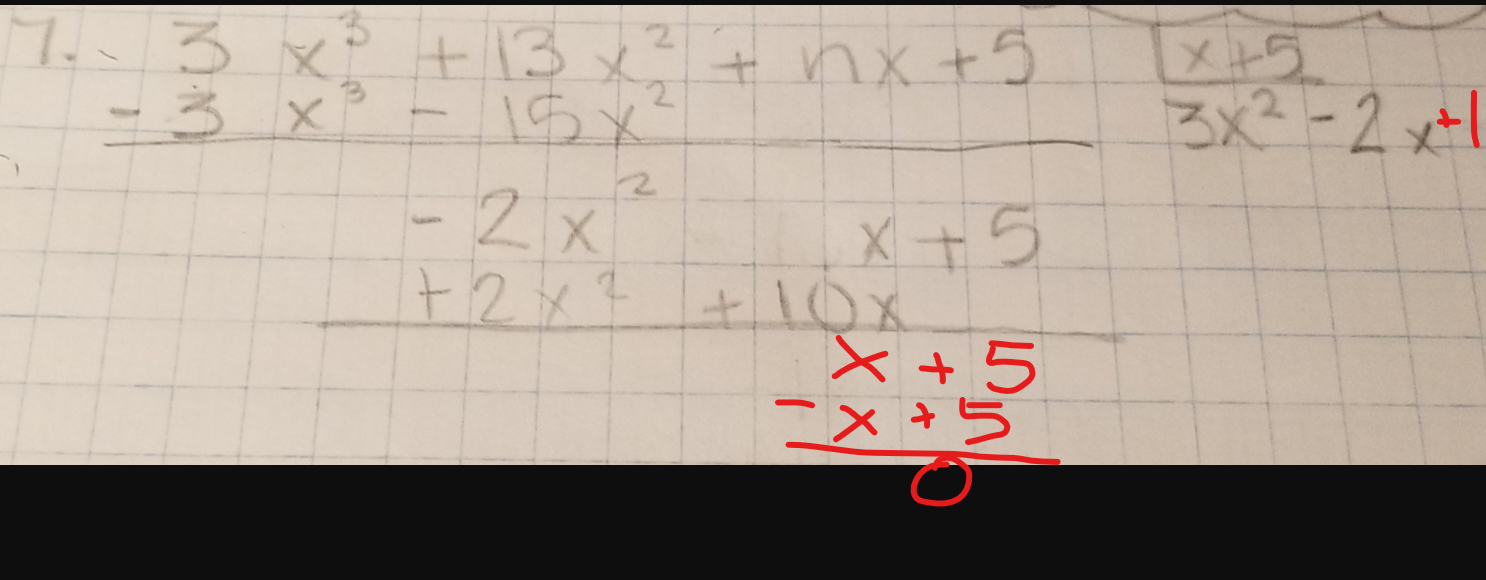 7. 3 x³ + 13 x² + nx + 5 | x + 5
- 3 x³ - 15 x² 3x² - 2x + 1
- 2 x² x + 5
+ 2 x² + 10x
x + 5
- x + 5
0